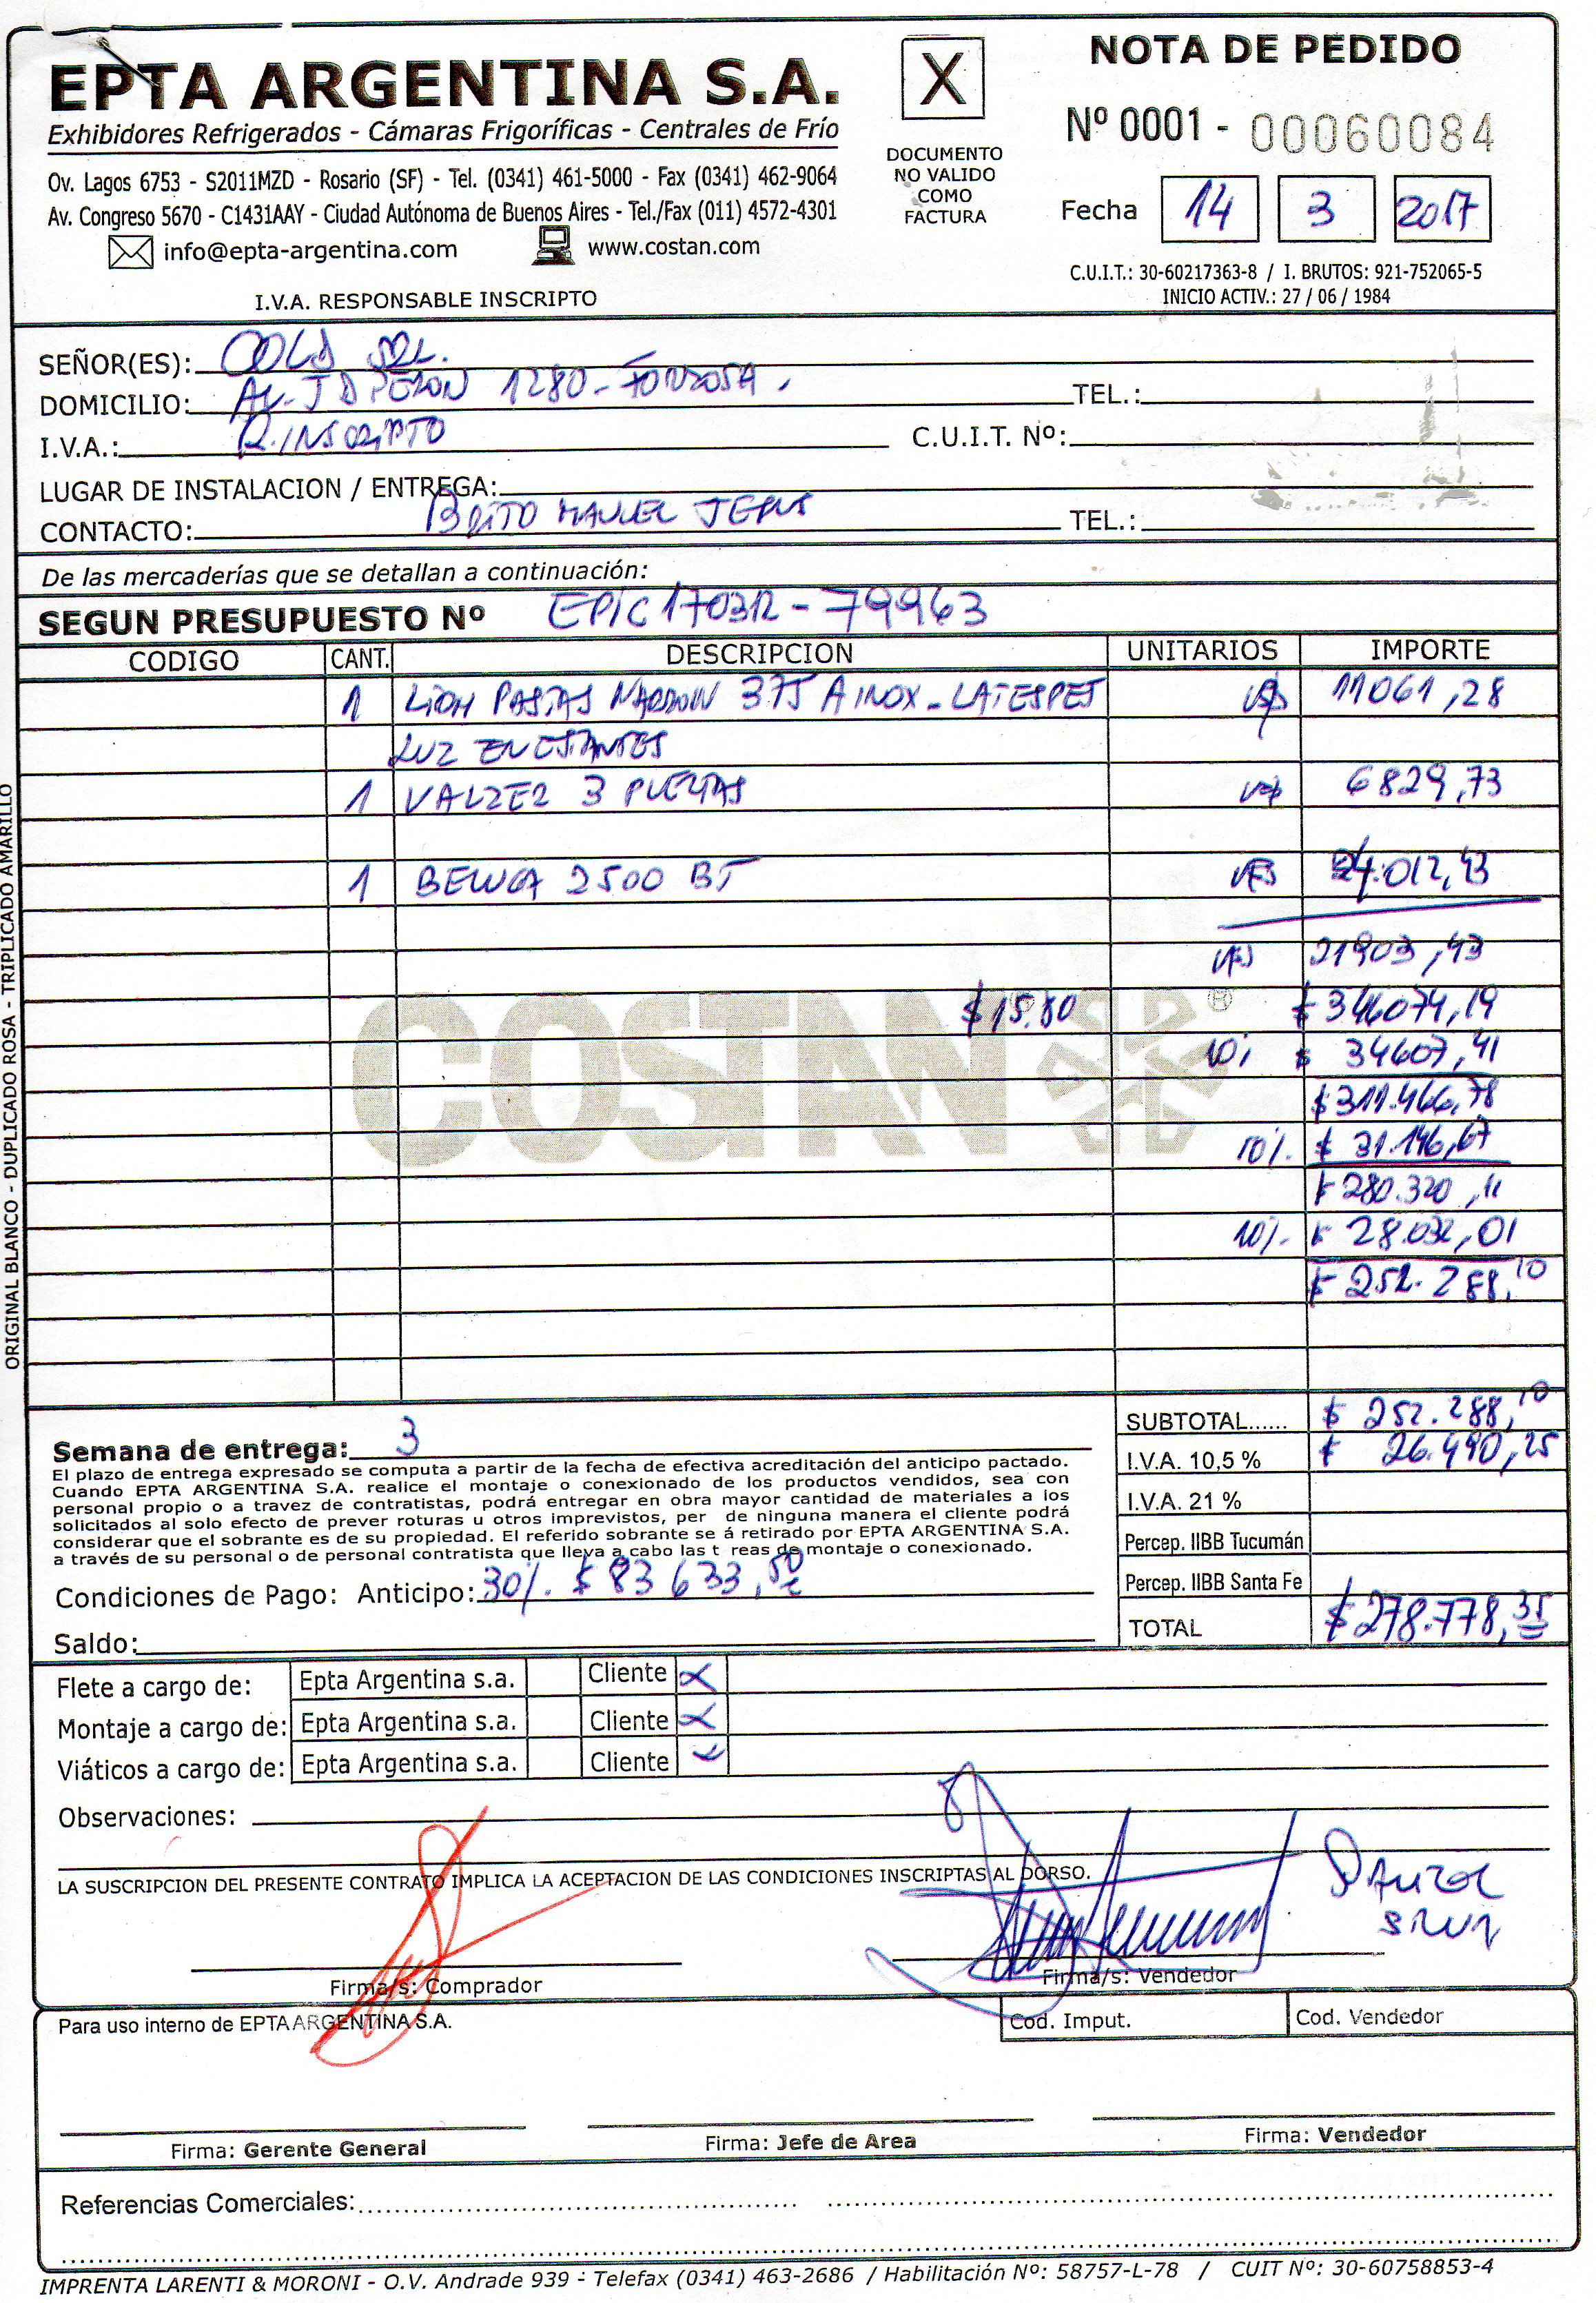 EPTA ARGENTINA S.A.
Exhibidores Refrigerados - Cámaras Frigoríficas - Centrales de Frío
Ov. Lagos 6753 - S2011MZD - Rosario (SF) - Tel. (0341) 461-5000 - Fax (0341) 462-9064
Av. Congreso 5670 - C1431AAY - Ciudad Autónoma de Buenos Aires - Tel./Fax (011) 4572-4301
info@epta-argentina.com www.costan.com
I.V.A. RESPONSABLE INSCRIPTO
X
DOCUMENTO
NO VALIDO
COMO
FACTURA
NOTA DE PEDIDO
Nº 0001 - 00060084
Fecha 14 3 2017
C.U.I.T.: 30-60217363-8 / I. BRUTOS: 921-752065-5
INICIO ACTIV.: 27 / 06 / 1984
SEÑOR(ES): COLD SRL.
DOMICILIO: AV. J D PERON 1280 - FORMOSA. TEL.:
I.V.A.: R. INSCRIPTO C.U.I.T. Nº:
LUGAR DE INSTALACION / ENTREGA:
CONTACTO: BRITO MANUEL JESUS TEL.:
De las mercaderías que se detallan a continuación:
SEGUN PRESUPUESTO Nº EPIC1703R - 79963
CODIGO CANT. DESCRIPCION UNITARIOS IMPORTE
1 LION PASTAS NARROW 375 A INOX - LATESPEJ U$S 11061,28
LUZ EN ESTANTES
1 VALZER 3 PUERTAS U$S 6829,73
1 BELUGA 2500 BT U$S 4.012,43
U$S 21903,43
$ 15.80 $ 346074,19
10% $ 34607,41
$ 311.466,78
10% $ 31.146,67
$ 280.320,11
10% $ 28.032,01
$ 252.288,10
COSTAN ®
ORIGINAL BLANCO - DUPLICADO ROSA - TRIPLICADO AMARILLO
Semana de entrega: 3
El plazo de entrega expresado se computa a partir de la fecha de efectiva acreditación del anticipo pactado.
Cuando EPTA ARGENTINA S.A. realice el montaje o conexionado de los productos vendidos, sea con
personal propio o a travez de contratistas, podrá entregar en obra mayor cantidad de materiales a los
solicitados al solo efecto de prever roturas u otros imprevistos, per de ninguna manera el cliente podrá
considerar que el sobrante es de su propiedad. El referido sobrante se á retirado por EPTA ARGENTINA S.A.
a través de su personal o de personal contratista que lleva a cabo las t reas de montaje o conexionado.
Condiciones de Pago: Anticipo: 30% $ 83 633,50
Saldo:
SUBTOTAL...... $ 252.288,10
I.V.A. 10,5 % $ 26.490,25
I.V.A. 21 %
Percep. IIBB Tucumán
Percep. IIBB Santa Fe
TOTAL $ 278.778,35
Flete a cargo de: Epta Argentina s.a. Cliente X
Montaje a cargo de: Epta Argentina s.a. Cliente X
Viáticos a cargo de: Epta Argentina s.a. Cliente X
Observaciones:
LA SUSCRIPCION DEL PRESENTE CONTRATO IMPLICA LA ACEPTACION DE LAS CONDICIONES INSCRIPTAS AL DORSO.
Firma/s: Comprador
Firma/s: Vendedor
Para uso interno de EPTA ARGENTINA S.A.
Cod. Imput. Cod. Vendedor
Firma: Gerente General Firma: Jefe de Area Firma: Vendedor
Referencias Comerciales:
IMPRENTA LARENTI & MORONI - O.V. Andrade 939 - Telefax (0341) 463-2686 / Habilitación Nº: 58757-L-78 / CUIT Nº: 30-60758853-4